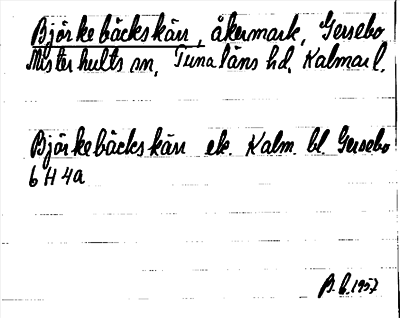 Björkebäckskärr, åkermark, Gersebo
Misterhults sn, Tunaläns hd, Kalmar l.
Björkebäckskärr ek. Kalm. bl. Gersebo
6 H 4a
B. L. 1957